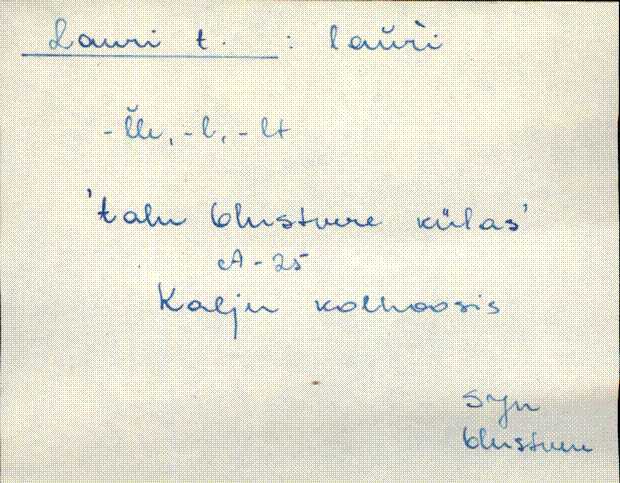 Lauri t. : lauri
-lle, -l, -lt
'talu Olustvere külas'
A-25
Kalju kolhoosis
Syn
Olustvere